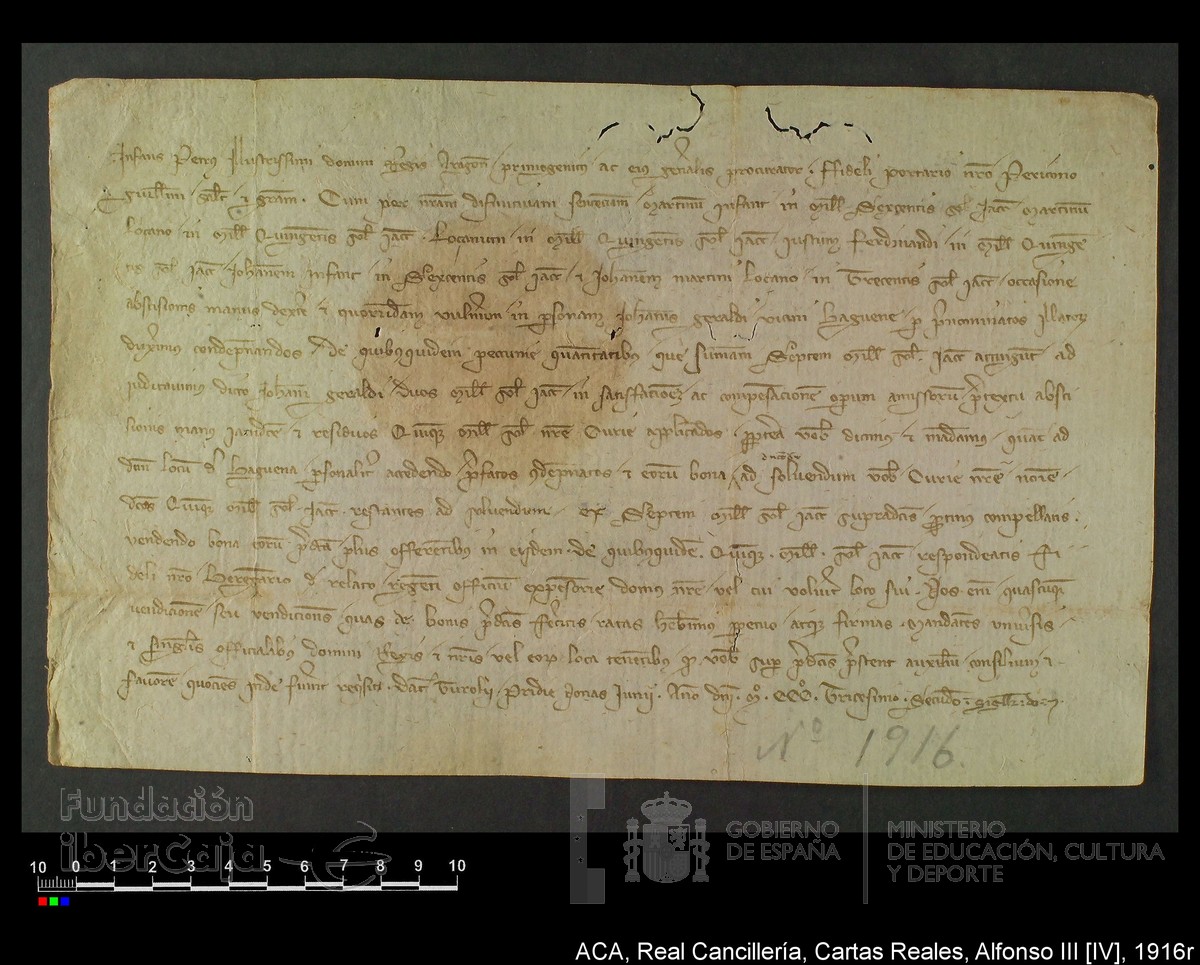 Infans Petrus Illustrissimi domini Regis Aragon primogenitus ac eius gnalis procurator. Fideli portario nro Periconio
Guillmi saltm & gram. Cum per nram difinitivam sentenciam Martinum Infant in Mille Sexgentis sol Iacc Martinum
Locano in Mille Quingentis sol Iacc. Locanum in Mille Quingentis sol Iacc Iustum Ferdinandi in Mille Quinge
tis sol Iacc Johannem Infant in Sexcentis sol Iacc & Johannem martini Locano in Trecentis sol Iacc occasione
abscisionis manus dextre & quorundam vulnerum in personam Johannis geraldi vicini Baguene p prenominatos Illatorum
duximus condepnandos de quibusquidem pecunie quantitatibus que sumam Septem Mille sol. Iacc attingunt ad
iudicavimus dicto Johanni geraldi duos Mille sol Iacc in satisfaccionem ac compensacionem operum amissorum pretextu absci
sionis manus & residuos Quinque Mille sol nre Curie applicandos. propterea vob dicimus & mandamus quat ad
dcm locum de Baguena personaliter accedendo prefatos condepnatos & eorum bona ad solvendum vob Curie nre noie
dcos Quinque Mille sol. Iacc. restantes ad solvendum ex Septem Mille sol Iacc supradictis protinus compellatis.
vendendo bona eorum predicta plus offerentibus in eisdem. de quibusquidem. Quinque. Mille. sol Iacc respondeatis Fi
deli nro Berengario de relato regenti officium expensorie domus nre vel cui voluerit loco sui. Nos enim quascunque
vendicionem seu vendiciones quas de bonis predictis feceritis ratas habebimus perpetuo atque firmas. Mandantes universis
& singulis officialibus domini Regis & nris vel eorum loca tenentibus quod vob super predictis prestent auxilium consilium &
favorem quociens inde fuerint requisiti. Dat Turolii. Pridie Nonas Iunii. Anno dni. Mo. CCCo. Tricesimo. Secundo.
No 1916.
Fundación
iberCaja
GOBIERNO
DE ESPAÑA
MINISTERIO
DE EDUCACIÓN, CULTURA
Y DEPORTE
10 0 1 2 3 4 5 6 7 8 9 10
ACA, Real Cancillería, Cartas Reales, Alfonso III [IV], 1916r